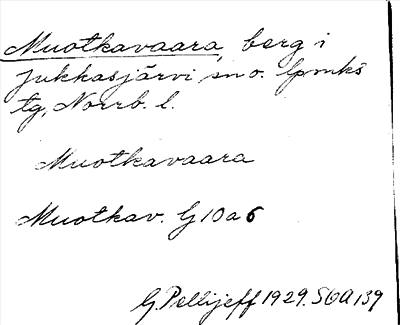 Muotkavaara, berg i
Jukkasjärvi sn o. lpmks
tg, Norrb. l.
Muotkavaara
Muotkav. G10a6
G. Pellijeff 1929. SOA 139